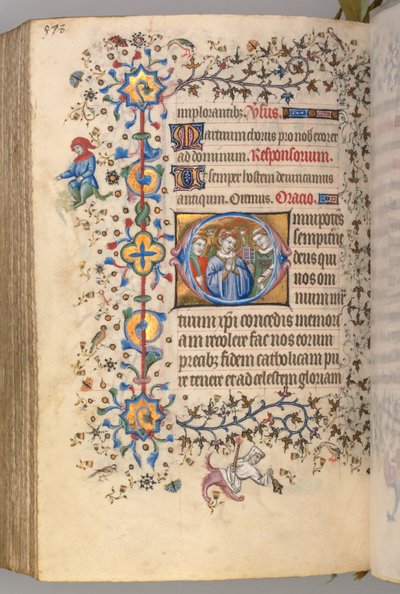 implorantibz. Vsus.
Martirum chorus pro nob exoret
ad dominum. Responsorium.
Ut semper hostem deuincamus
antiquum. Oremus. Oracio.
Omnipotēs
sempitne
deus qui
nos om
nium mr
tirum xp̄i concedis memori
am recolere fac nos eorum
precibz fidem catholicam pu
re tenere et ad celestem gloriam